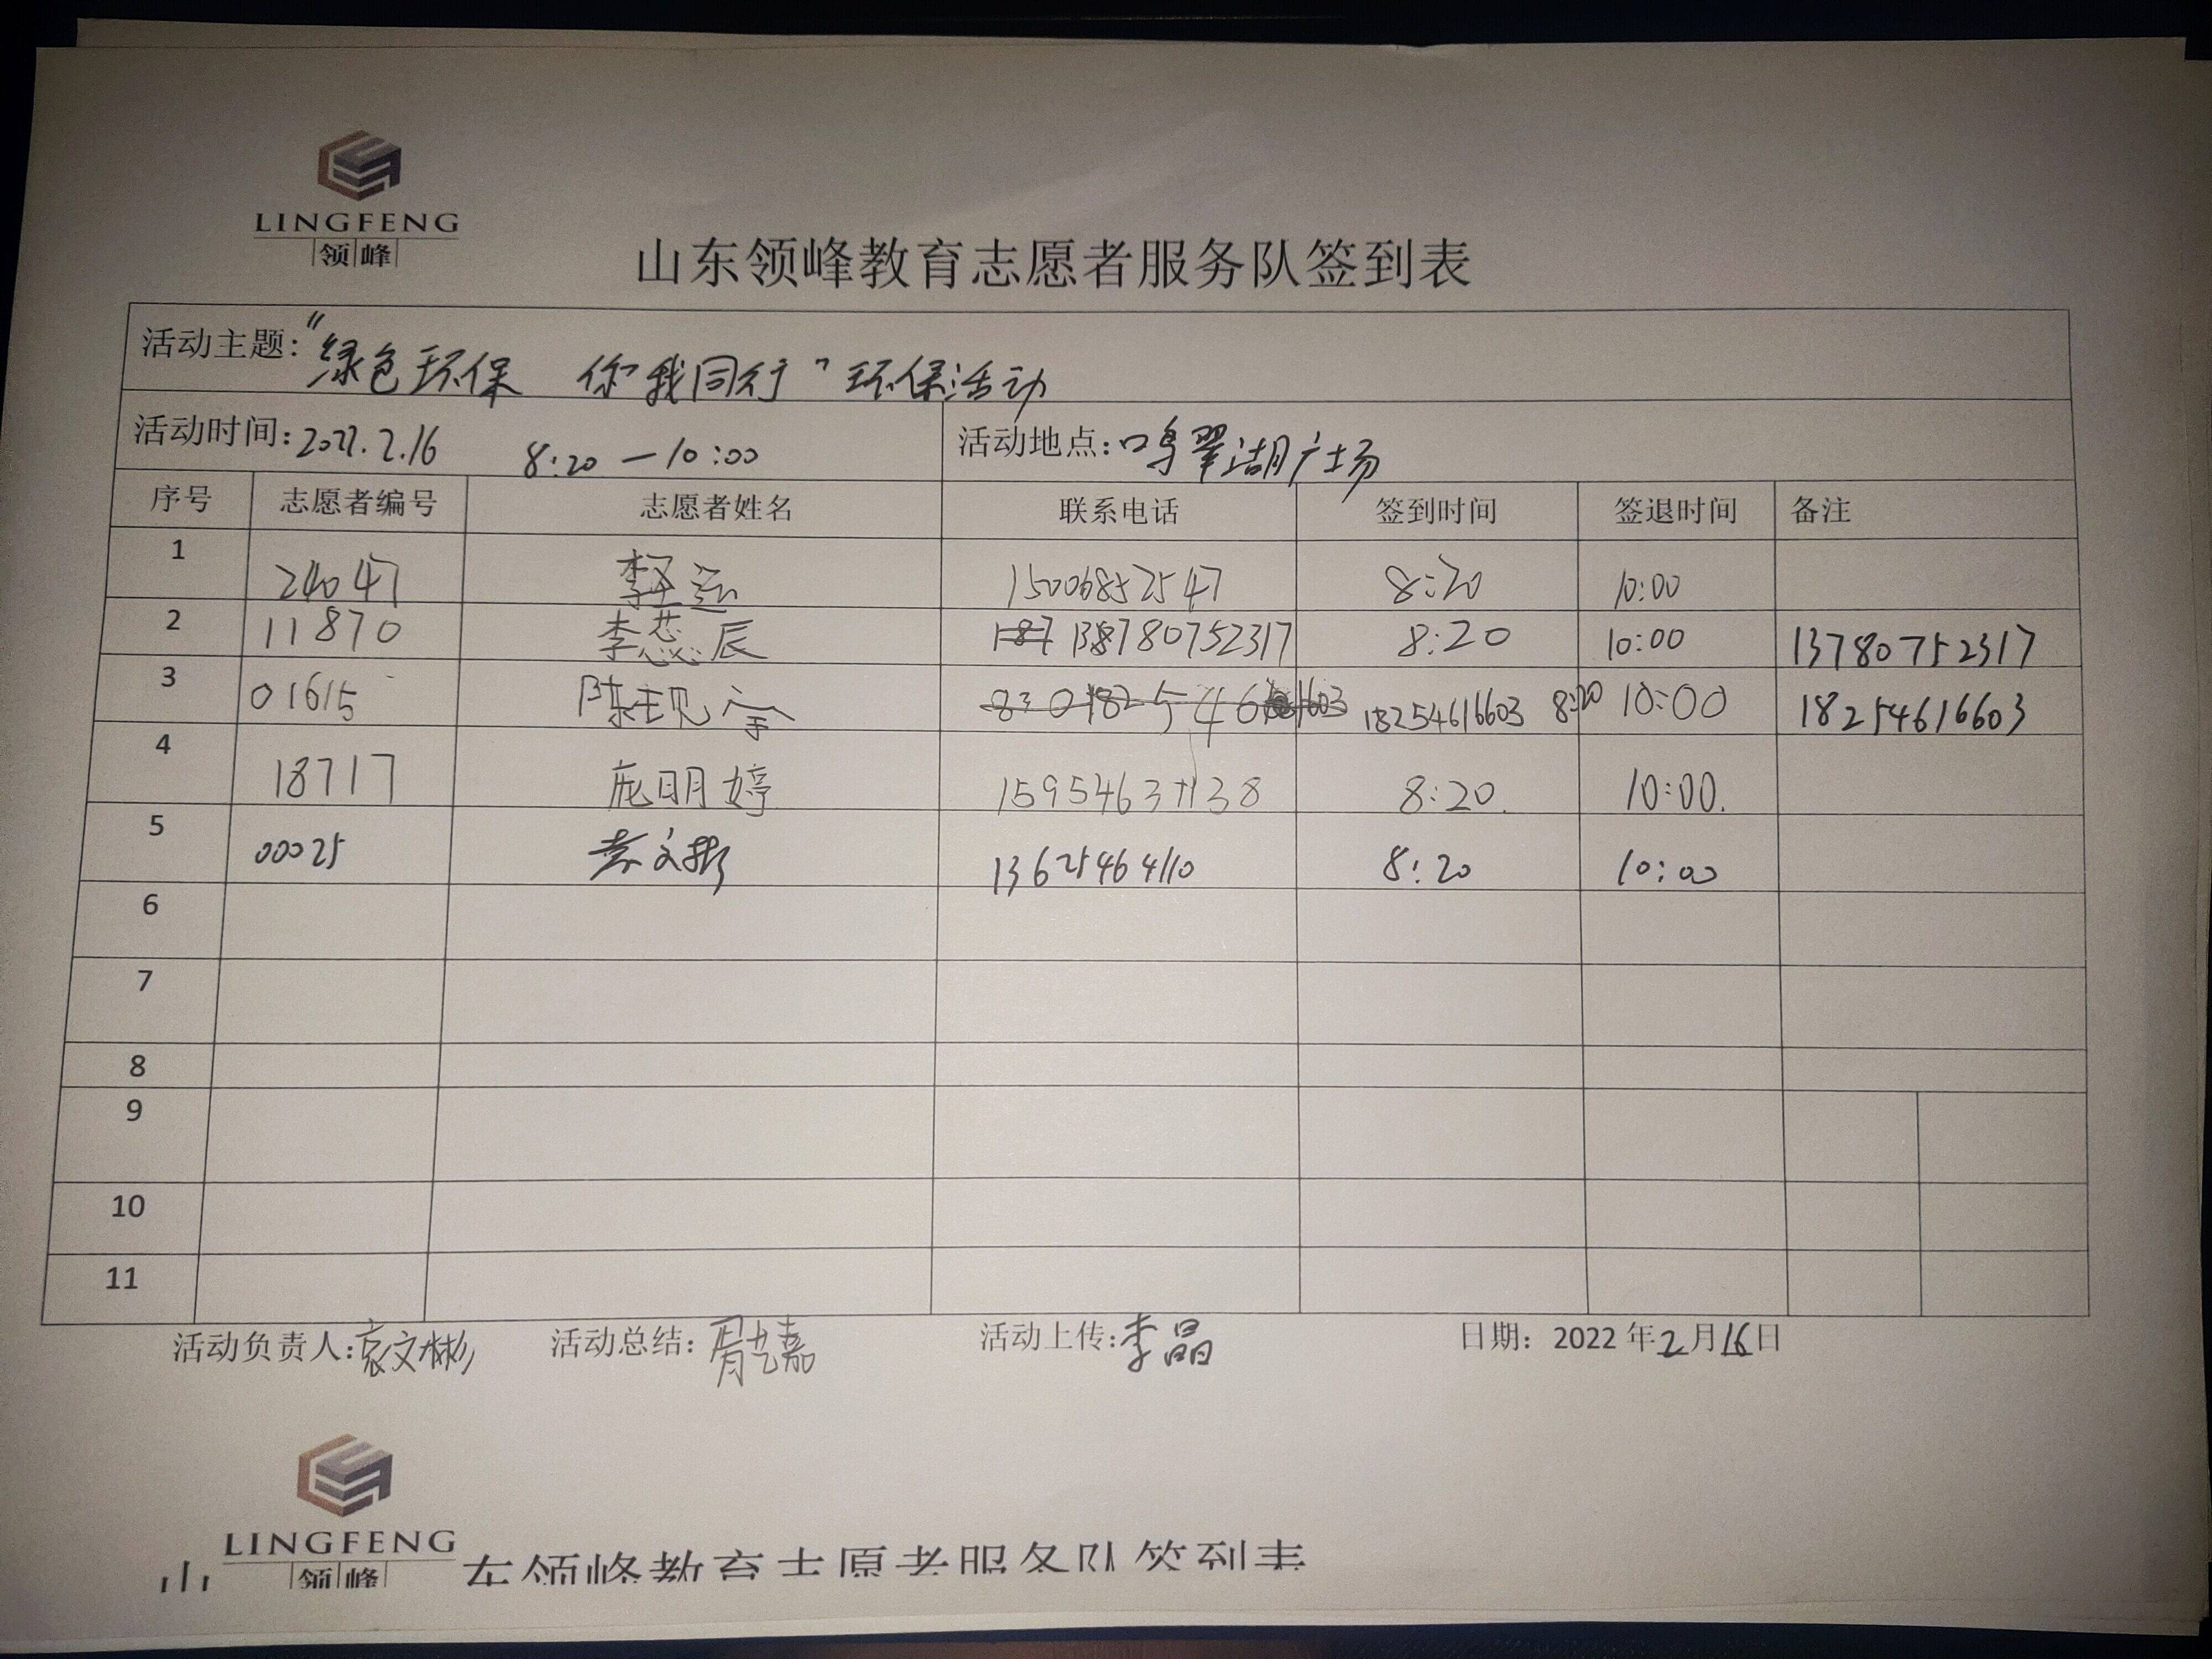 LINGFENG
领峰
山东领峰教育志愿者服务队签到表
活动主题："绿色环保 你我同行"环保活动
活动时间：2022.2.16 8:20—10:00 活动地点：鸣翠湖广场
序号 志愿者编号 志愿者姓名 联系电话 签到时间 签退时间 备注
1 24047 15006852547 8:20 10:00
2 11870 李蕊辰 13780752317 8:20 10:00 13780752317
3 01615 陈现宇 18254616603 8:20 10:00 18254616603
4 18717 庞明婷 8:20 10:00
5 00025 袁文彬 13625464110 8:20 10:00
6
7
8
9
10
11
活动负责人：袁文彬 活动总结：周艺嘉 活动上传：李晶 日期：2022年2月16日
LINGFENG
领峰
山东领峰教育志愿者服务队签到表